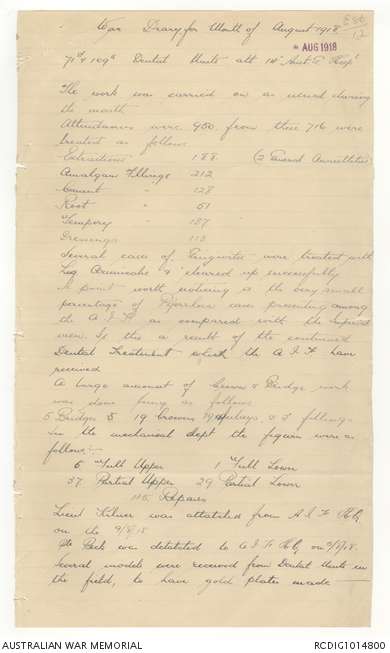 War Diary for Month of August 1918
AUG 1918
71st & 109th Dental Units att 1st Aust G Hosp
The work was carried on as usual during
the month
Attendances were 950 from these 716 were
treated as follows
Extractions 188 (2 General Anaesthetics)
Amalgam Fillings 212
Cement " 128
Root " 51
Tempory " 187
Dressings 113
Several cases of Gingivitis were treated with
Liq Arsenicalis & cleared up successfully
A point worth noticing is the very small
percentage of Pyorrhoea cases presenting among
the A.I.F. as compared with the Imperial
men. Is this a result of the continued
Dental Treatment which the A I F have
received
A large amount of Crown & Bridge work
was done being as follows
5 Bridges 19 Crowns inlays & 3 fillings
In the mechanical dept the figures were as
follows:-
5 Full Upper 1 Full Lower
37 Partial Upper 29 Partial Lower
115 Repairs
Lieut Kilner was attatched from A I F Hq
on the 9/8/18
Sgt Peck was detatched to A I F Hq on 9/8/18.
Several models were received from Dental Units in
the field, to have gold plates made
AUSTRALIAN WAR MEMORIAL
RCDIG1014800